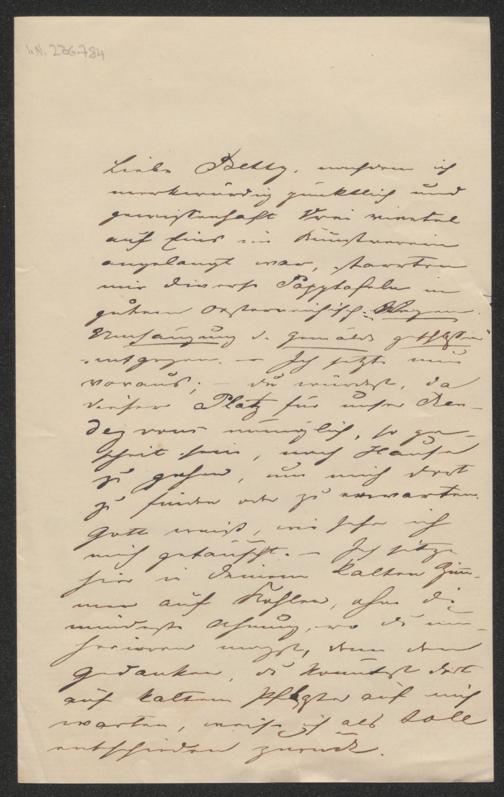 I.N. 226.784
Liebe Betty, nachdem ich
merkwürdig pünktlich und
gewissenhaft Drei viertel
auf Eins im Kunstverein
angelangt war, starrten
mir diverse Papptafeln in
gutem oesterreichisch: Wegen
Umhängung d. Gemälde geschlossen
entgegen. – Ich setzte nun
voraus, – du würdest, da
dieser Platz für unser Ren-
dezvous unmöglich, so ge-
scheit sein, nach Hause
zu gehen, um mich dort
zu finden oder zu erwarten.
Gott weiß, wie sehr ich
mich getäuscht. – Ich sitze
hier in deinem kalten Zim-
mer auf Kohlen, ohne die
mindeste Ahnung, wo du
magst, denn den
Gedanken, du könntest dort
auf kaltem auf mich
warten, weise ich als toll
entschieden zurück.